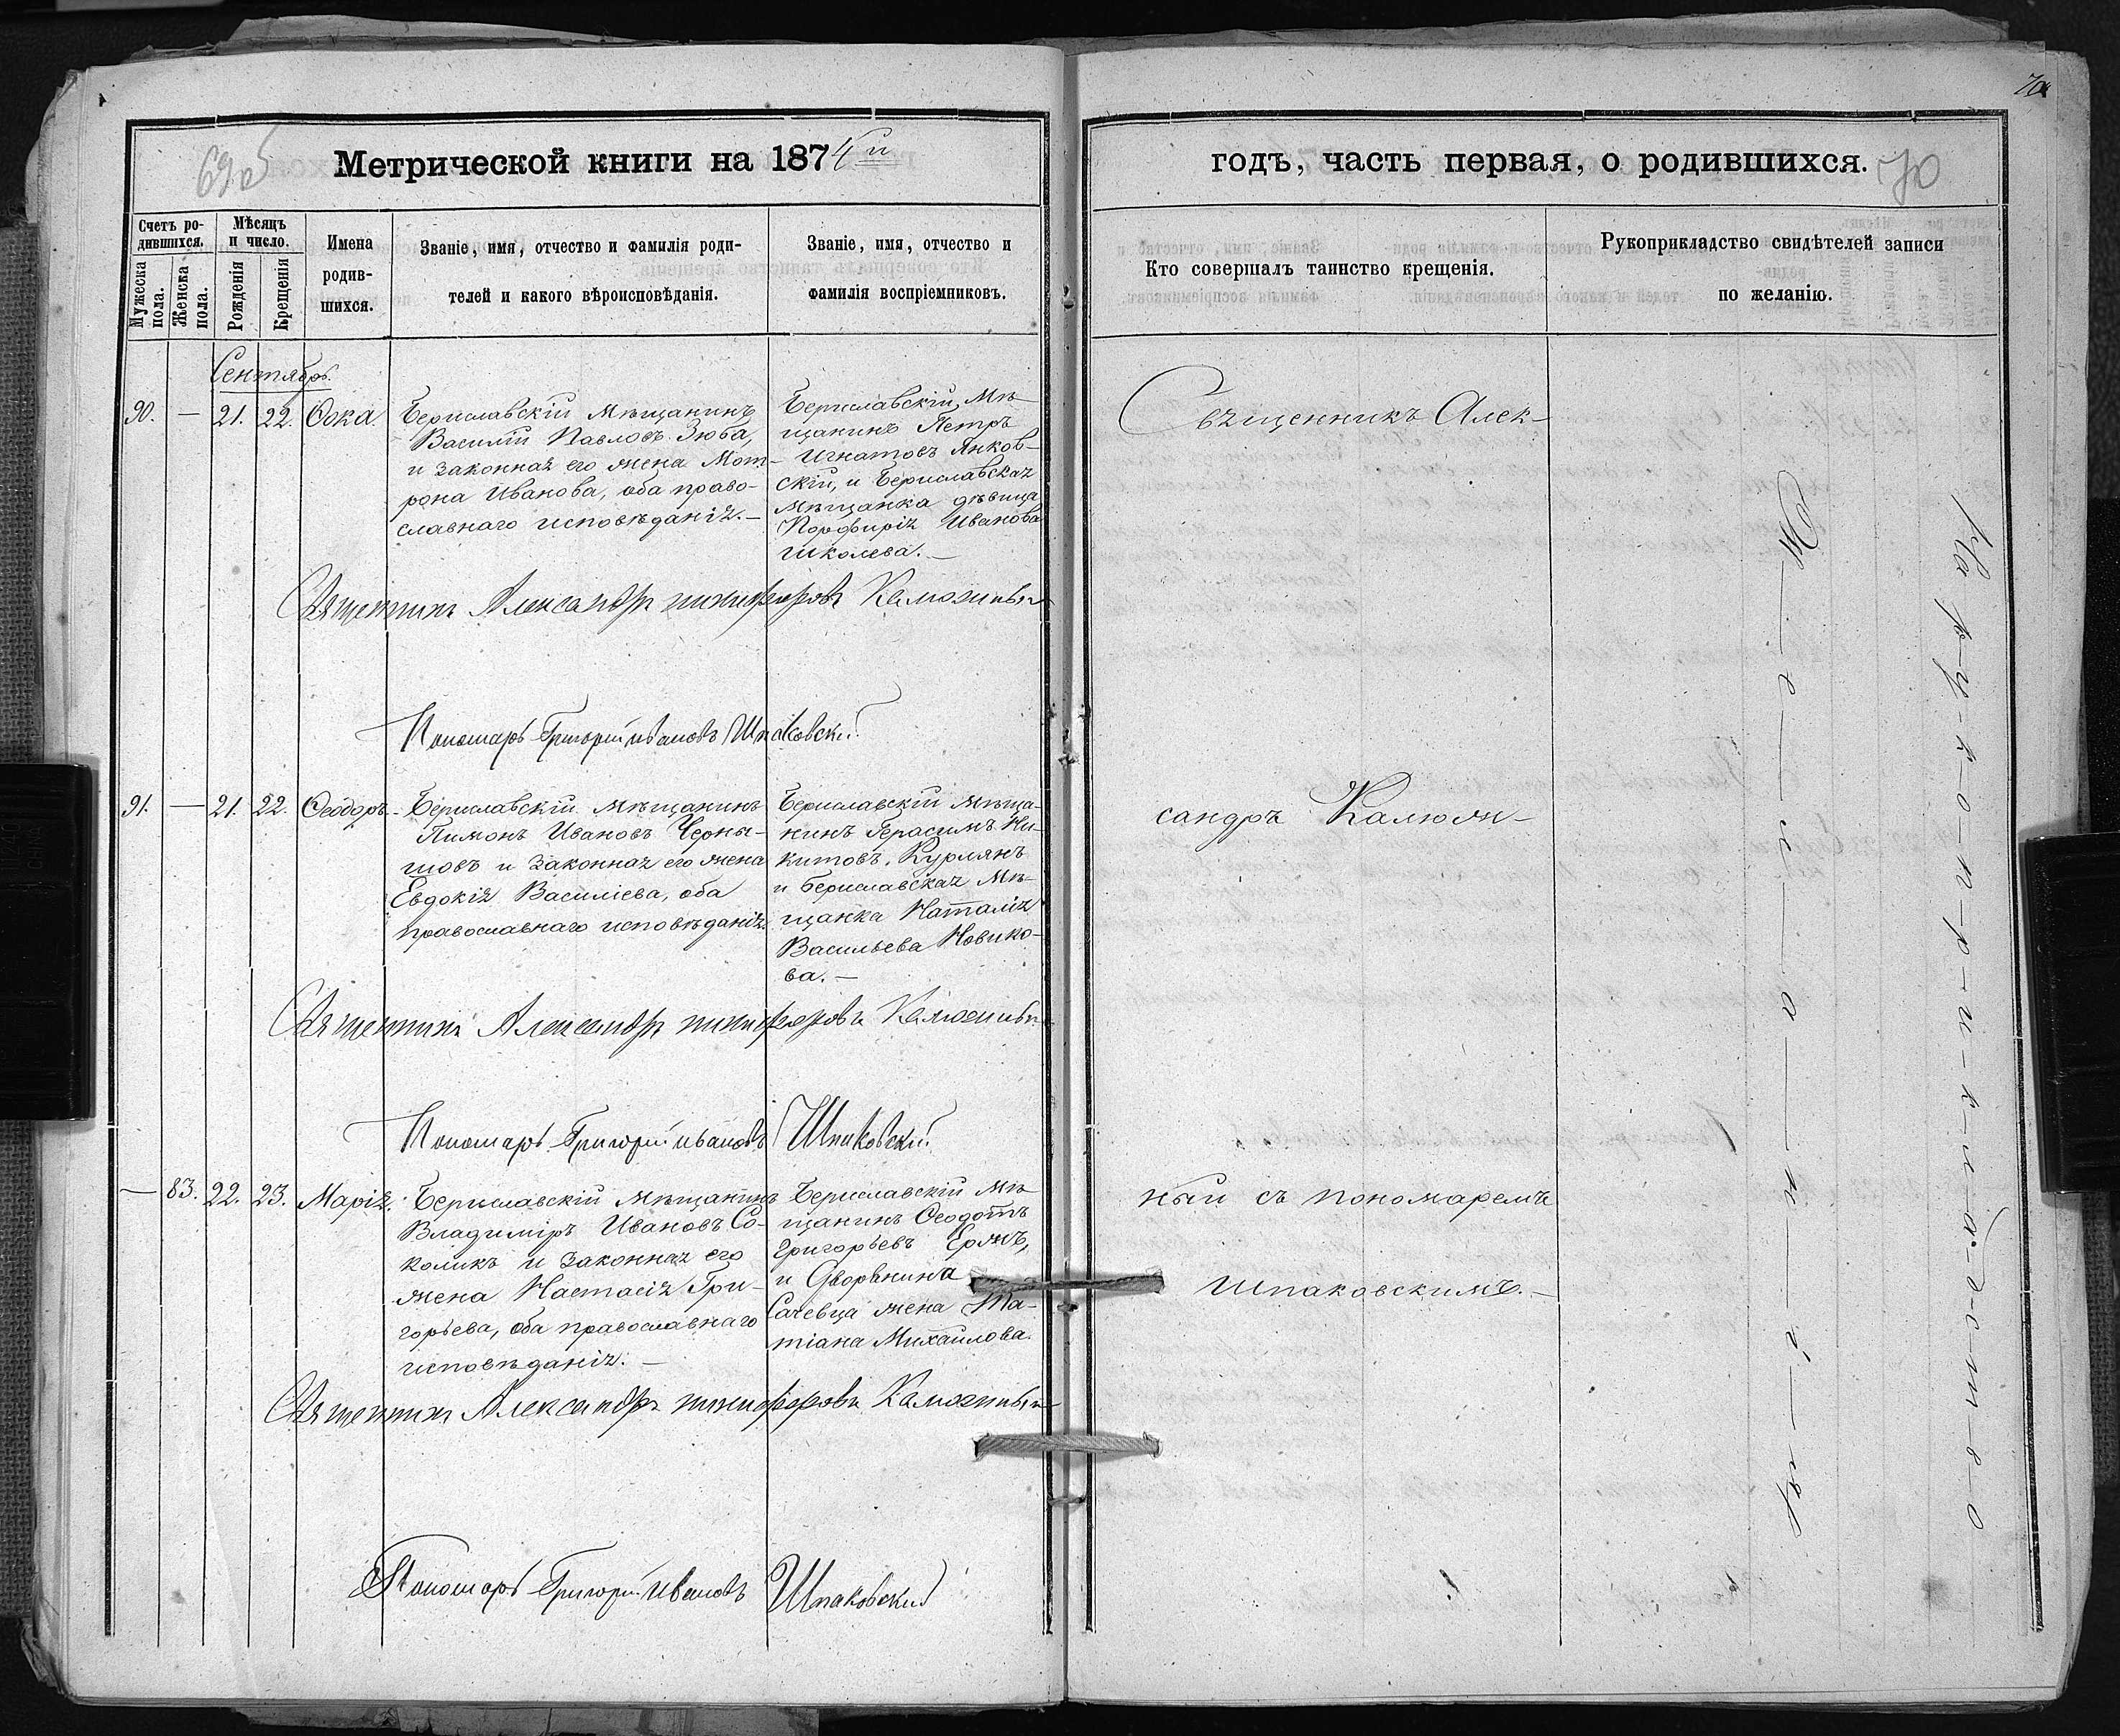 70
69об
Метрической книги на 1874й
Счетъ ро-
дившихся.
Мужеска
пола.
Женска
пола.
Мѣсяцъ
и число.
Рожденія
Крещенія
Имена
родив-
шихся.
Званіе, имя, отчество и фамилія роди-
телей и какого вѣроисповѣданія.
Званіе, имя, отчество и
фамилія воспріемниковъ.
Сентябрь.
90. — 21. 22. Ѳока.
Бериславскій Мѣщанинъ
Василій Павловъ Зюба,
и законная его жена Мот-
рона Иванова, оба право-
славнаго исповѣданія. —
Бериславскій Мѣ-
щанинъ Петръ
Игнатовъ Янков-
скій, и Бериславская
Мѣщанка дѣвица
Порфирія Иванова
Школева. —
Священникъ Александръ Никифоровъ Калюжный
Пономарь Григорій Ивановъ Шпаковскій
91. — 21. 22. Ѳеодоръ.
Бериславскій Мѣщанинъ
Пимонъ Ивановъ Черны-
шовъ и законная его жена
Евдокія Василіева, оба
православнаго исповѣданія.
Бериславскій мѣща-
нинъ Герасимъ Ни-
китовъ Курлянъ
и Бериславская Мѣ-
щанка Наталія
Васильева Новико-
ва. —
Священникъ Александръ Никифоровъ Калюжный
Пономарь Григорій Ивановъ Шпаковскій
— 83. 22. 23. Марія.
Бериславскій Мѣщанинъ
Владиміръ Ивановъ Со-
коликъ и законная его
жена Настасія Гри-
горьева, оба православнаго
исповѣданія. —
Бериславскій Мѣ-
щанинъ Ѳеодотъ
Григорьевъ Ержъ,
и Дворянина
жена Та-
тіана Михайлова.
Священникъ Александръ Никифоровъ Калюжный
Пономарь Григорій Ивановъ Шпаковскій
годъ, часть первая, о родившихся. 70
Кто совершалъ таинство крещенія.
Рукоприкладство свидѣтелей записи
по желанію.
Священникъ Алек-
сандръ Калюж-
ный съ пономаремъ
Шпаковскимъ. —
На рукоприкладство